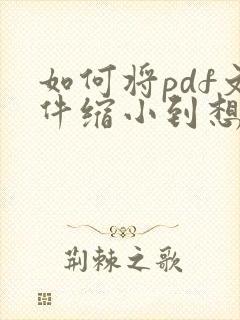 如何将pdf文
件缩小到想
荆棘之歌